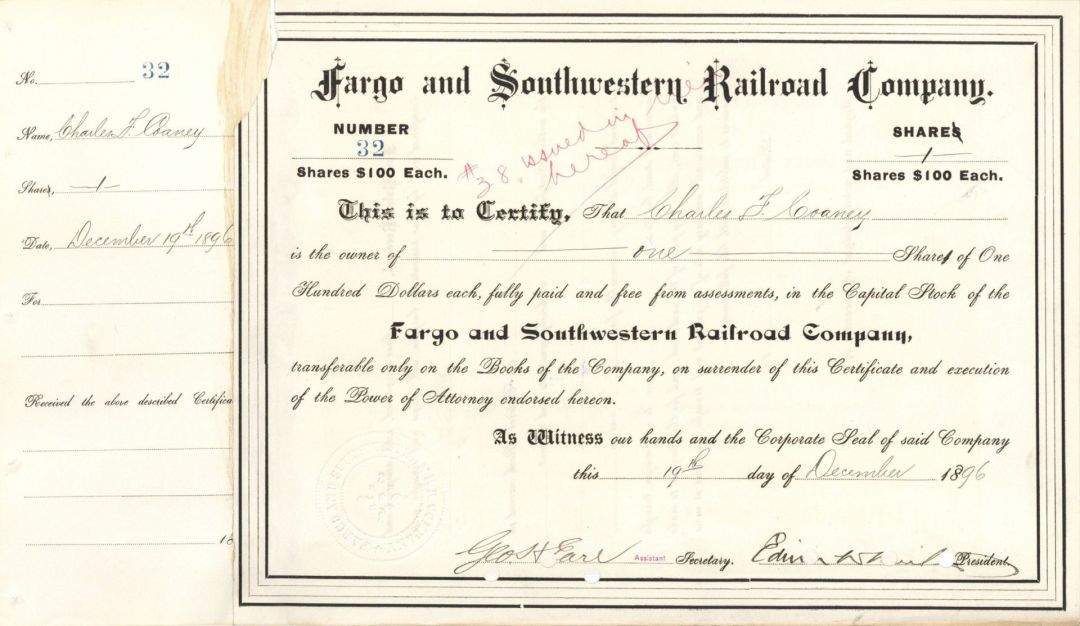 No. 32
Name, Charles F. Coaney
Shares, 1
Date, December 19th 1896
For
Received the above described Certifica
18
Fargo and Southwestern Railroad Company.
NUMBER
32
Shares $100 Each.
#38 issued in
hereof
SHARES
1
Shares $100 Each.
This is to Certify, That Charles F. Coaney
is the owner of one Shares of One
Hundred Dollars each, fully paid and free from assessments, in the Capital Stock of the
Fargo and Southwestern Railroad Company,
transferable only on the Books of the Company, on surrender of this Certificate and execution
of the Power of Attorney endorsed hereon.
As Witness our hands and the Corporate Seal of said Company
this 19th day of December 1896
Geo H Earl Assistant Secretary. President